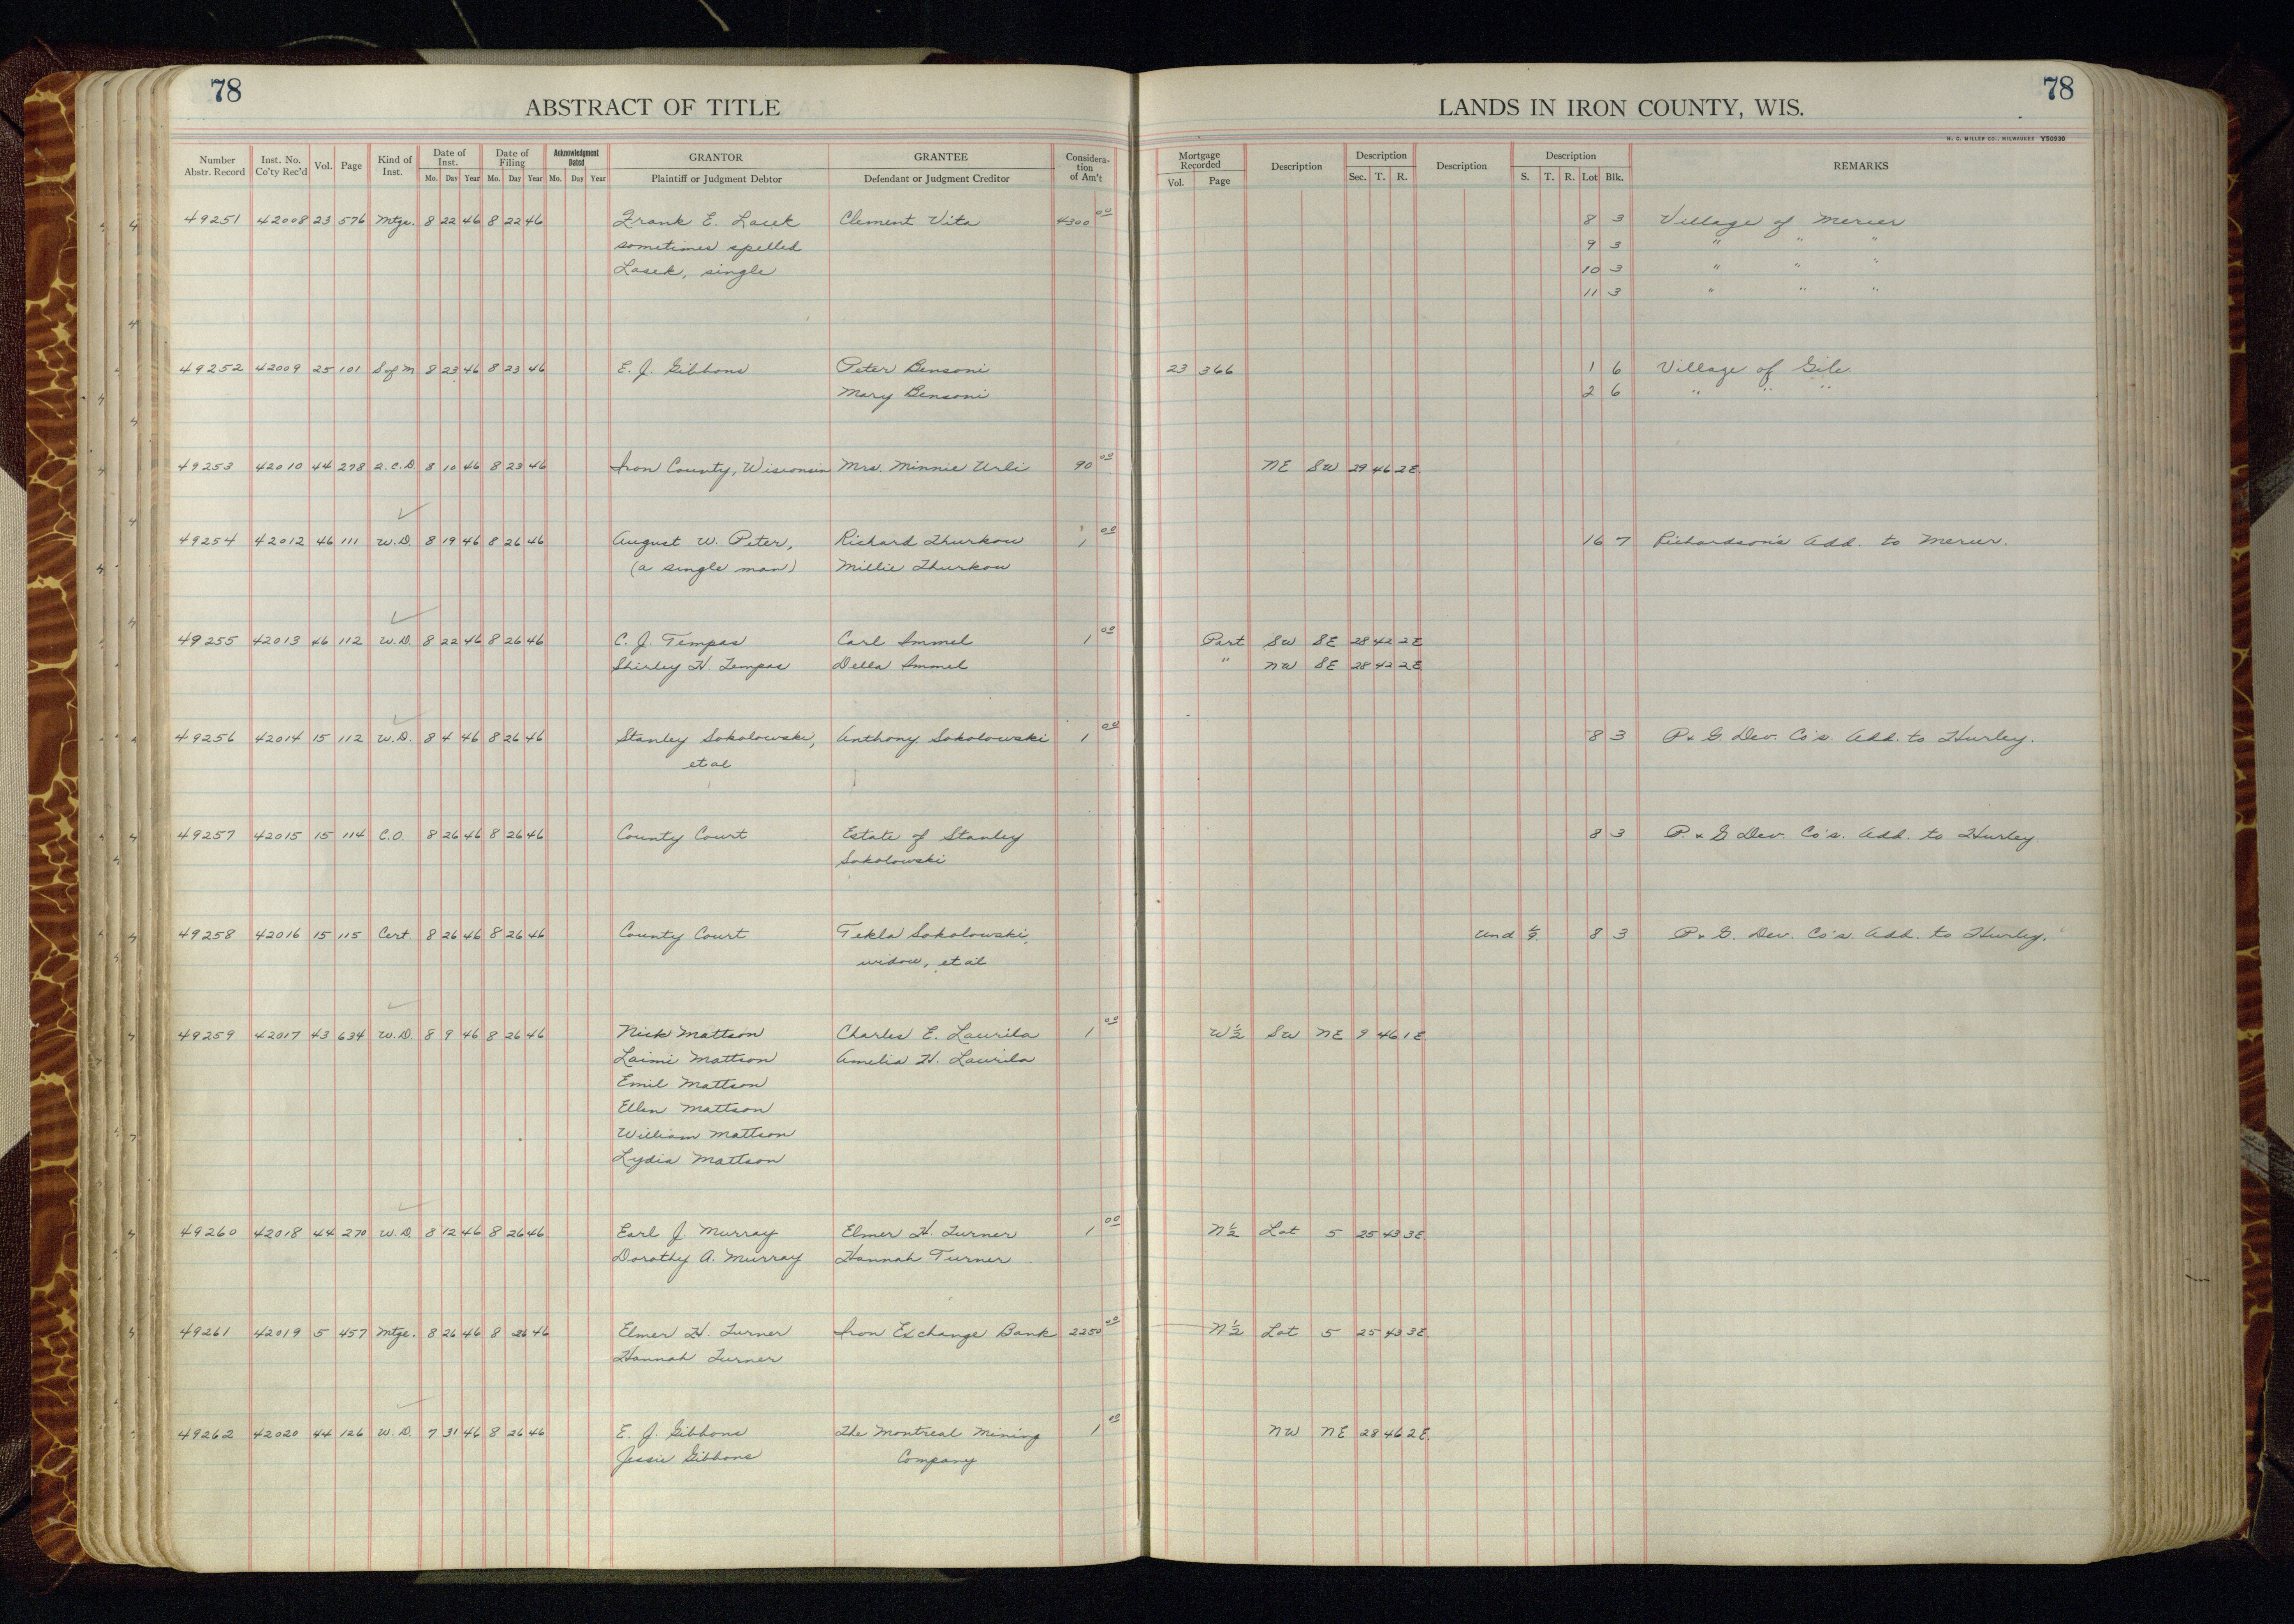 78
ABSTRACT OF TITLE
LANDS IN IRON COUNTY, WIS.
78
H. C. MILLER CO., MILWAUKEE Y50930
Number Abstr. Record Inst. No. Co'ty Rec'd Vol. Page Kind of Inst. Date of Inst. Mo. Day Year Date of Filing Mo. Day Year Acknowledgment Dated Mo. Day Year GRANTOR Plaintiff or Judgment Debtor GRANTEE Defendant or Judgment Creditor Considera-tion of Am't Mortgage Recorded Vol. Page Description Description Sec. T. R. Description Description S. T. R. Lot Blk. REMARKS
49251 42008 23 576 Mtge. 8 22 46 8 22 46 Frank E. Lacek Clement Vita 4300 00 8 3 Village of Mercer
sometimes spelled 9 3 " " "
Lasek, single 10 3 " " "
11 3 " " "
49252 42009 25 101 S of M 8 23 46 8 23 46 E. J. Gibbons Peter Bensoni 23 366 1 6 Village of Gile.
Mary Bensoni 2 6 " " "
49253 42010 44 278 Q.C.D. 8 10 46 8 23 46 Iron County, Wisconsin Mrs. Minnie Urli 90 00 NE SW 29 46 2E
49254 42012 46 111 W.D. 8 19 46 8 26 46 August W. Peter, Richard Thurkow 1 00 16 7 Richardson's Add. to Mercer.
(a single man) Millie Thurkow
49255 42013 46 112 W.D. 8 22 46 8 26 46 C. J. Tempas Carl Immel 1 00 Part SW SE 28 42 2E
Shirley H. Tempas Della Immel " NW SE 28 42 2E
49256 42014 15 112 W.D. 8 4 46 8 26 46 Stanley Sokolowski, Anthony Sokolowski 1 00 8 3 P. & G. Dev. Co's. Add. to Hurley.
et al
49257 42015 15 114 C.O. 8 26 46 8 26 46 County Court Estate of Stanley 8 3 P. & G Dev. Co's. Add. to Hurley.
Sokolowski
49258 42016 15 115 Cert. 8 26 46 8 26 46 County Court Tekla Sokolowski, Und 8 3 P. & G. Dev. Co's. Add. to Hurley.
widow, et al
49259 42017 43 634 W.D. 8 9 46 8 26 46 Nick Mattson Charles E. Laurila 1 00 W½ SW NE 9 46 1E
Laimi Mattson Amelia H. Laurila
Emil Mattson
Ellen Mattson
William Mattson
Lydia Mattson
49260 42018 44 270 W.D. 8 12 46 8 26 46 Earl J. Murray Elmer H. Turner 1 00 N½ Lot 5 25 43 3E
Dorothy A. Murray Hannah Turner
49261 42019 5 457 Mtge. 8 26 46 8 26 46 Elmer H. Turner Iron Exchange Bank 2250 00 N½ Lot 5 25 43 3E
Hannah Turner
49262 42020 44 126 W.D. 7 31 46 8 26 46 E. J. Gibbons The Montreal Mining 1 00 NW NE 28 46 2E
Jessie Gibbons Company